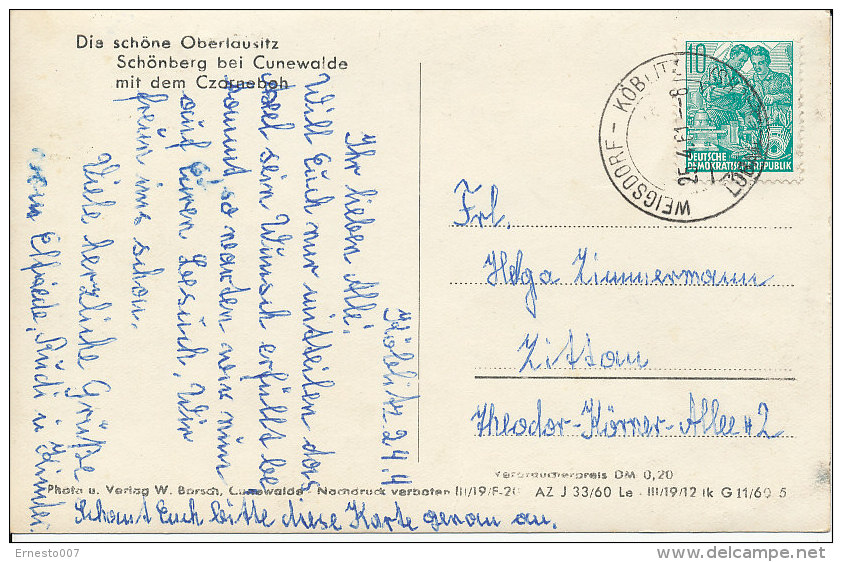 Die schöne Oberlausitz
Schönberg bei Cunewalde
mit dem Czorneboh
10
DEUTSCHE
DEMOKRATISCHE REPUBLIK
WEIGSDORF - KÖBLITZ
25.4.61 - 8
Köblitz 24.4
Ihr lieben Alle!
Will Euch nur mitteilen das
sein Wunsch erfüllt be
kommt, so warten wir nun
auf Euren Besuch. Wir
freun uns schon.
Viele herzliche Grüße
Elfriede, Rudi u.
Schaut Euch bitte diese Karte genau an.
Frl.
Helga Zimmermann
Zittau
Theodor-Körner-Allee 2
Verbraucherpreis DM 0,20
Photo u. Verlag W. Borsch, Cunewalde Nachdruck verboten III/19/F-20 AZ J 33/60 Le III/19/12 lk G 11/60 5
Ernesto007
delcampe.net